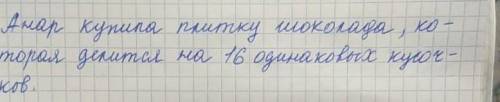 Анар купила плитку шоколада, ко-
торая делится на 16 одинаковых кусоч-
ков.